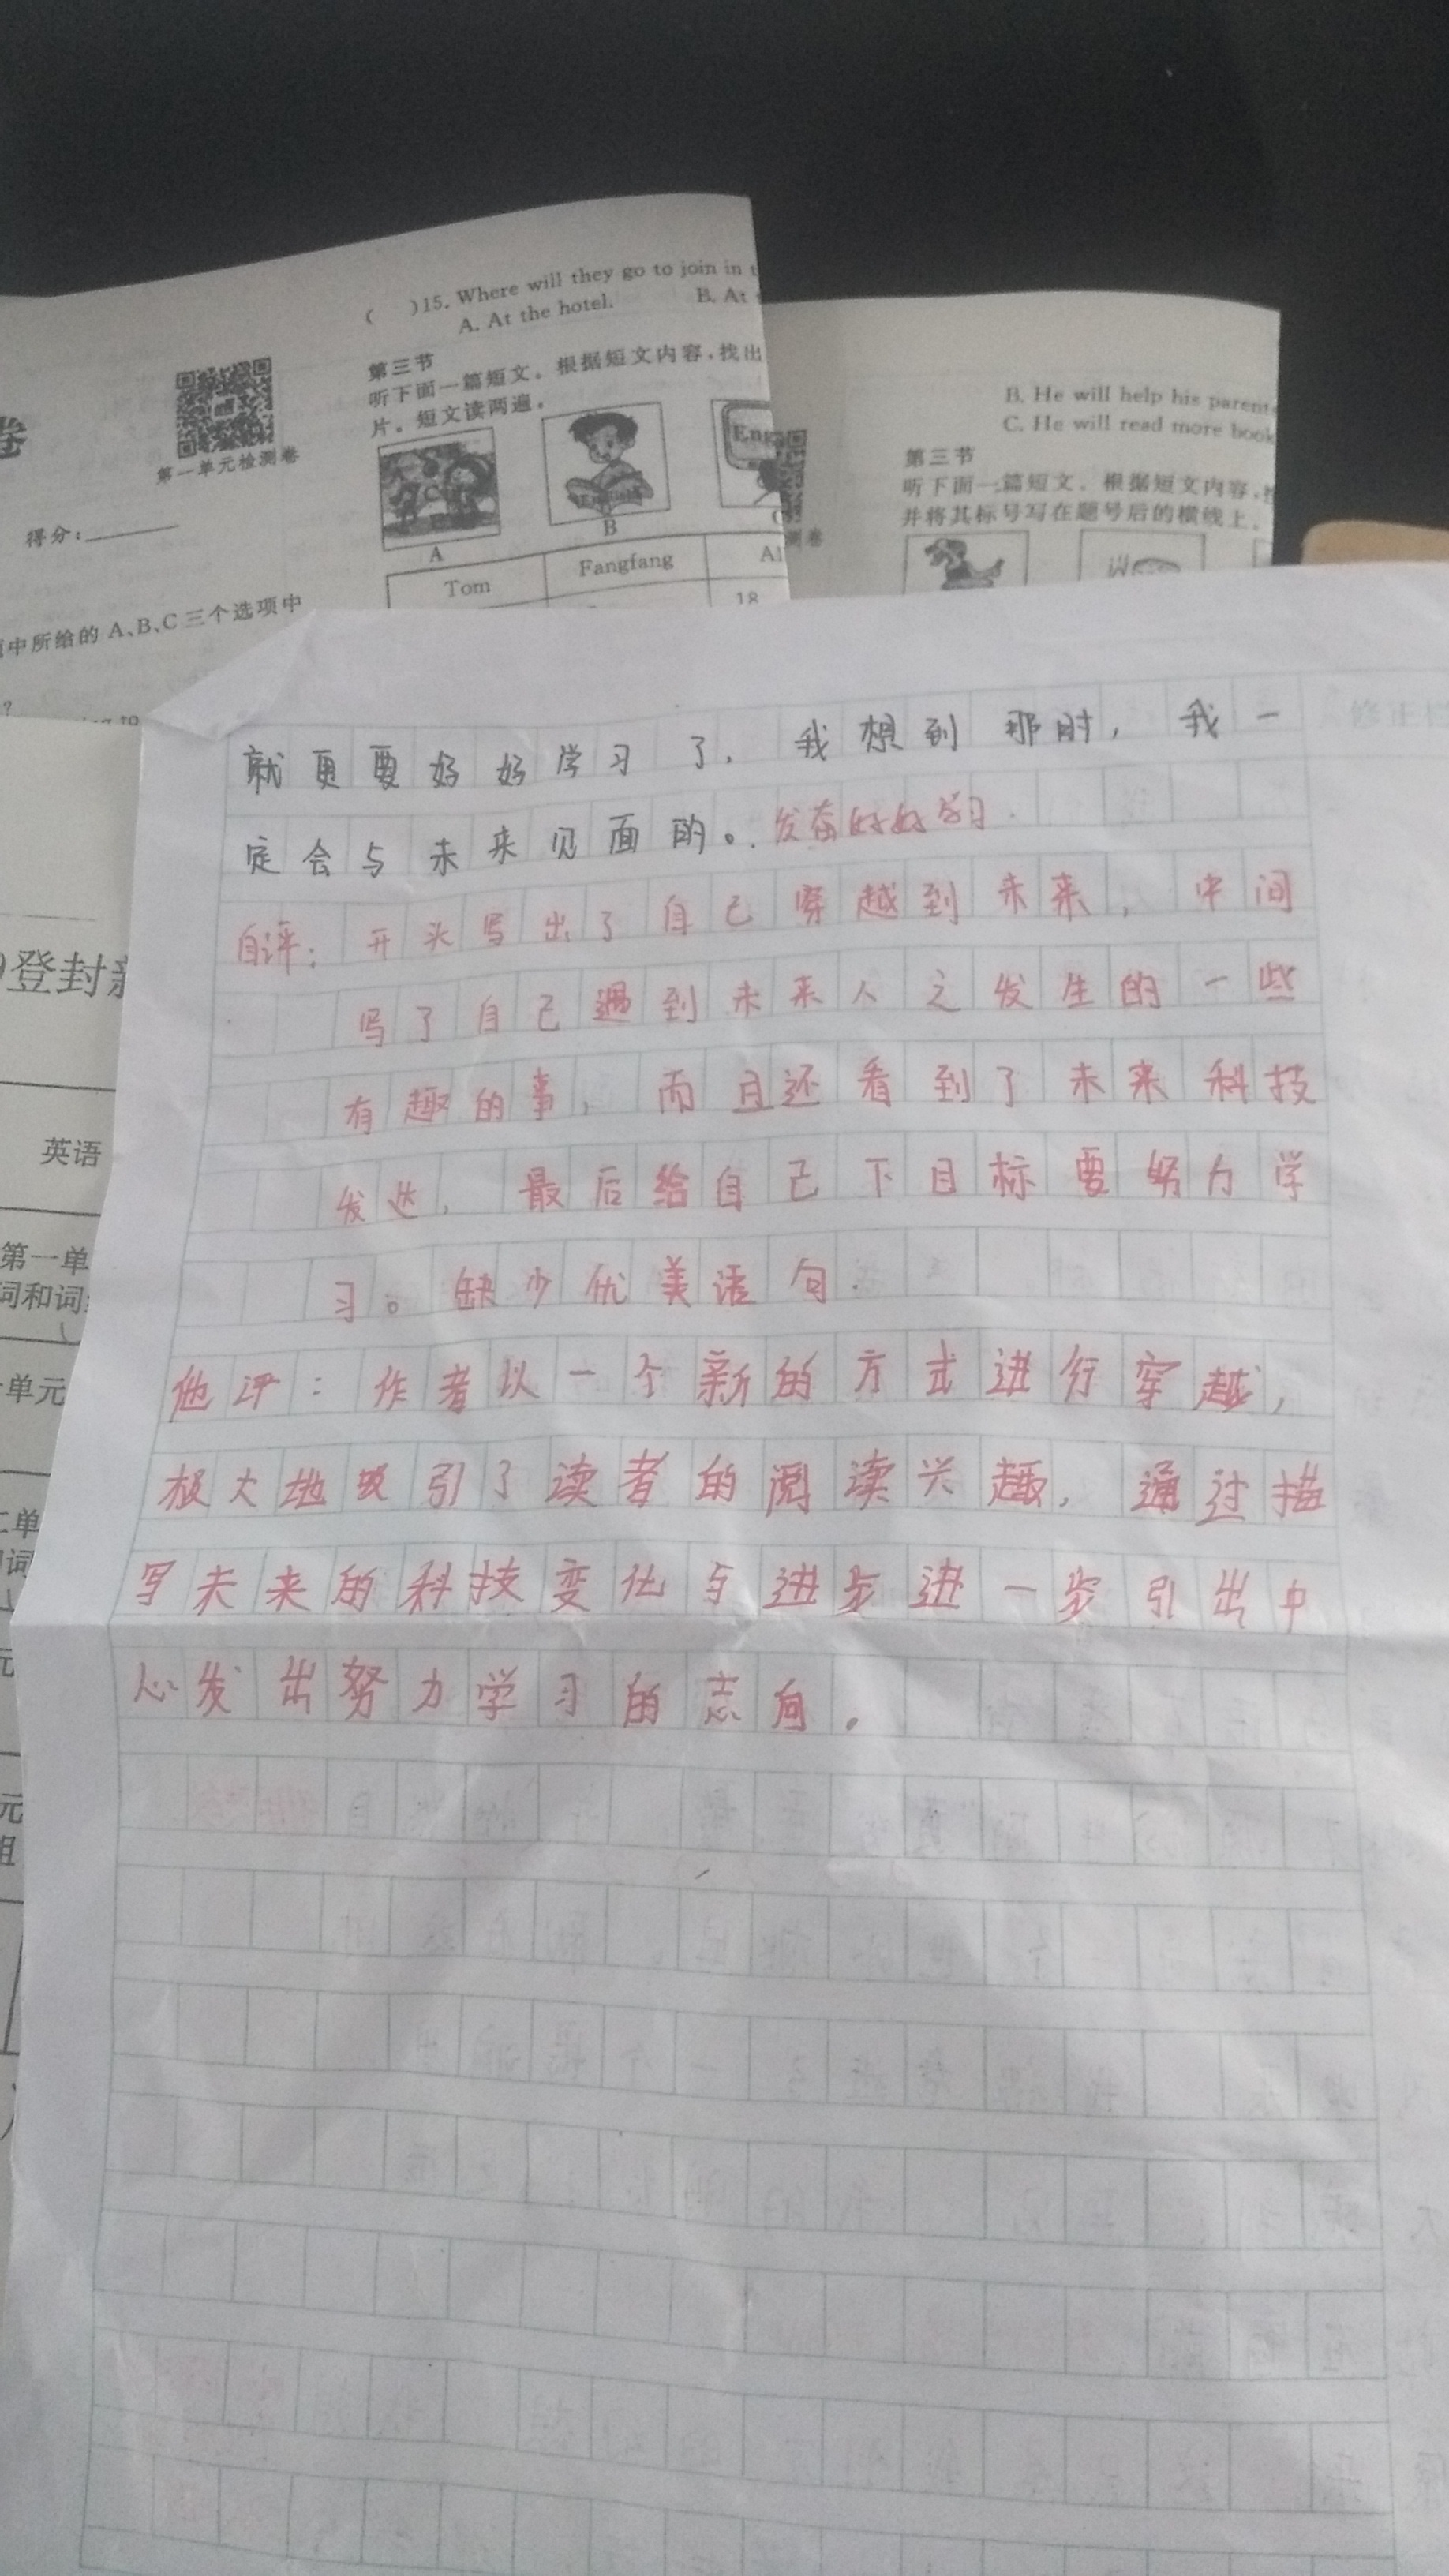 ( )15. Where will they go to join in t
A. At the hotel. B. At
第三节
听下面一篇短文。根据短文内容,找出
片。短文读两遍。
Eng
A
B
Tom Fangfang Al
18
卷
第一单元检测卷
得分:
中所给的 A、B、C 三个选项中
?
B. He will help his parent
C. He will read more book
第三节
听下面一篇短文。根据短文内容,
并将其标号写在题号后的横线上。
测卷
登封
英语
第一单
词和词
单元
二单
词
元
元
组
修正
就更要好好学习了,我想到那时,我一
定会与未来见面的。发奋好好学习.
自评:开头写出了自己穿越到未来,中间
写了自己遇到未来人之发生的一些
有趣的事,而且还看到了未来科技
发达,最后给自己下目标要努力学
习。缺少优美语句.
他评:作者以一个新的方式进行穿越,
极大地吸引了读者的阅读兴趣,通过描
写未来的科技变化与进步进一步引出中
心发出努力学习的志向。